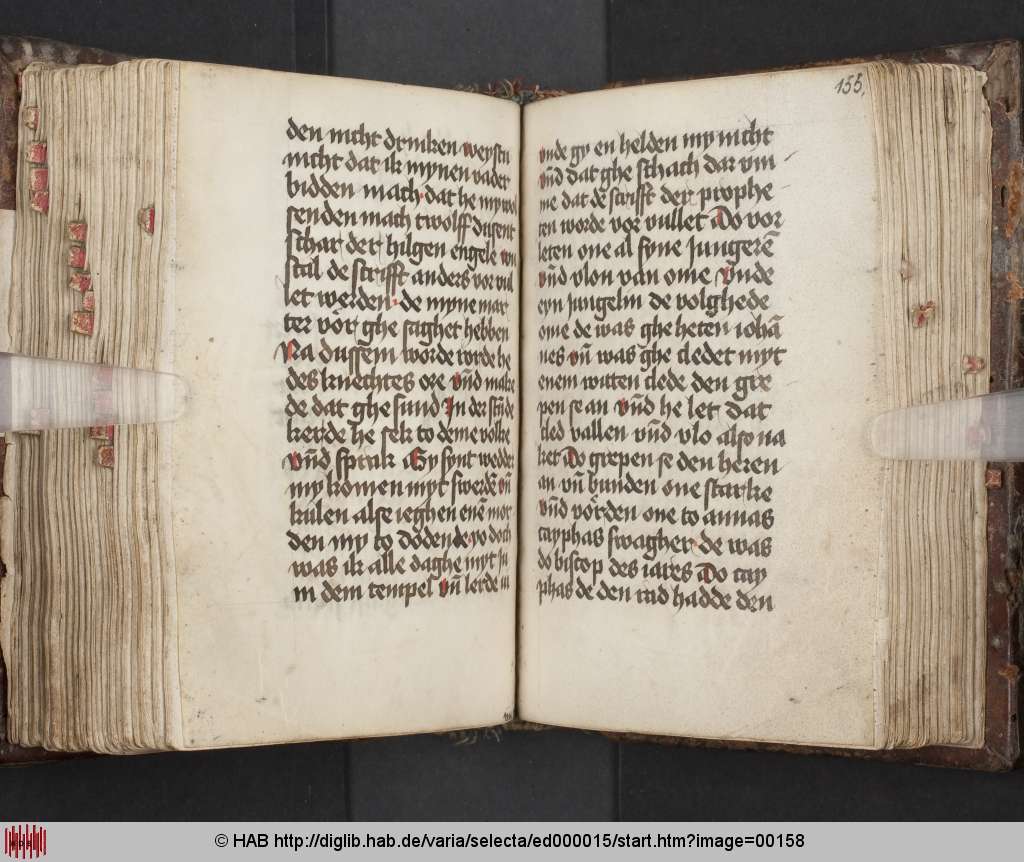 den nicht drinken weystu
nicht dat ik mynen vader
bidden mach dat he my wol
senden mach twolff dusent
schar der hilgen engele wu
schal de scrifft anders vor vul
let werden de myne mar
ter vor ghe saghet hebben
Na dussem worde rorde he
des knechtes ore vnd make
de dat ghe sund In der stunde
kerde he sek to deme volke
vnd sprak Gy synt wedder
my komen myt swerdē vn̄
kulen alse ieghen enē mor
den my to dodende yo doch
was ik alle daghe myt ju
in dem tempel vn̄ lerde iu
155,
vnde gy en helden my nicht
vnd dat ghe schach dar vm
me dat de scrifft der prophe
ten worde vor vullet Do vor
leten one al syne jungerē
vnd vlon van ome Vnde
eyn jungelin de volghede
ome de was ghe heten iohā
nes vn̄ was ghe cledet myt
enem witten clede den gre
pen se an vnd he let dat
cled vallen vnd vlo also na
ket Do grepen se den heren
an vn̄ bunden one starke
vnd vorden one to annas
cayphas swagher de was
do biscop des iares Do cay
phas de den rad hadde den
© HAB http://diglib.hab.de/varia/selecta/ed000015/start.htm?image=00158